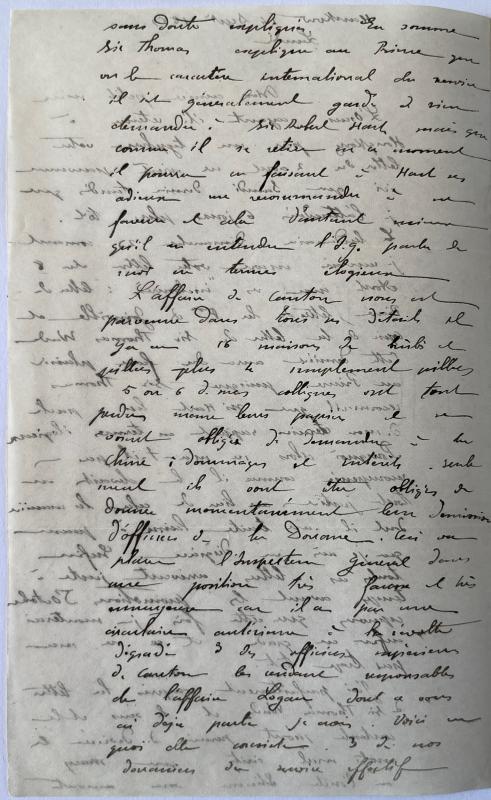 sans doute expliqués. En somme
Sir Thomas explique au Prince que
vu le caractère international du service
il est généralement gardé et rien
demandé. Sir Robert Hart, mais que
comme il se retire en ce moment
il pourra en faisant à Hart ses
adieux me recommander à sa
faveur et cela d'autant mieux
qu'il a entendu l'I.G. parler de
moi en termes élogieux
L'affaire de Canton nous est
parvenue dans tous ses détails et
y a eu 16 maisons de brûlées et
pillées plus simplement pillées
5 ou 6 de mes collègues ont tout
perdu même leurs papiers et se
voient obligés de demander à la
Chine : dommages et intérêts. seule
ment ils vont être obligés de
donner momentanément leur démission
d'officiers de la Douane. Ceci va
placer l'Inspecteur Général dans
une position très fausse et très
ennuyeuse car il a par une
circulaire antérieure à la révolte
dégradé 3 des officiers supérieurs
de Canton les rendant responsables
de l'affaire Logan dont je vous
ai déjà parlé je crois. Voici en
quoi elle consiste. 3 de nos
douaniers du service effectif